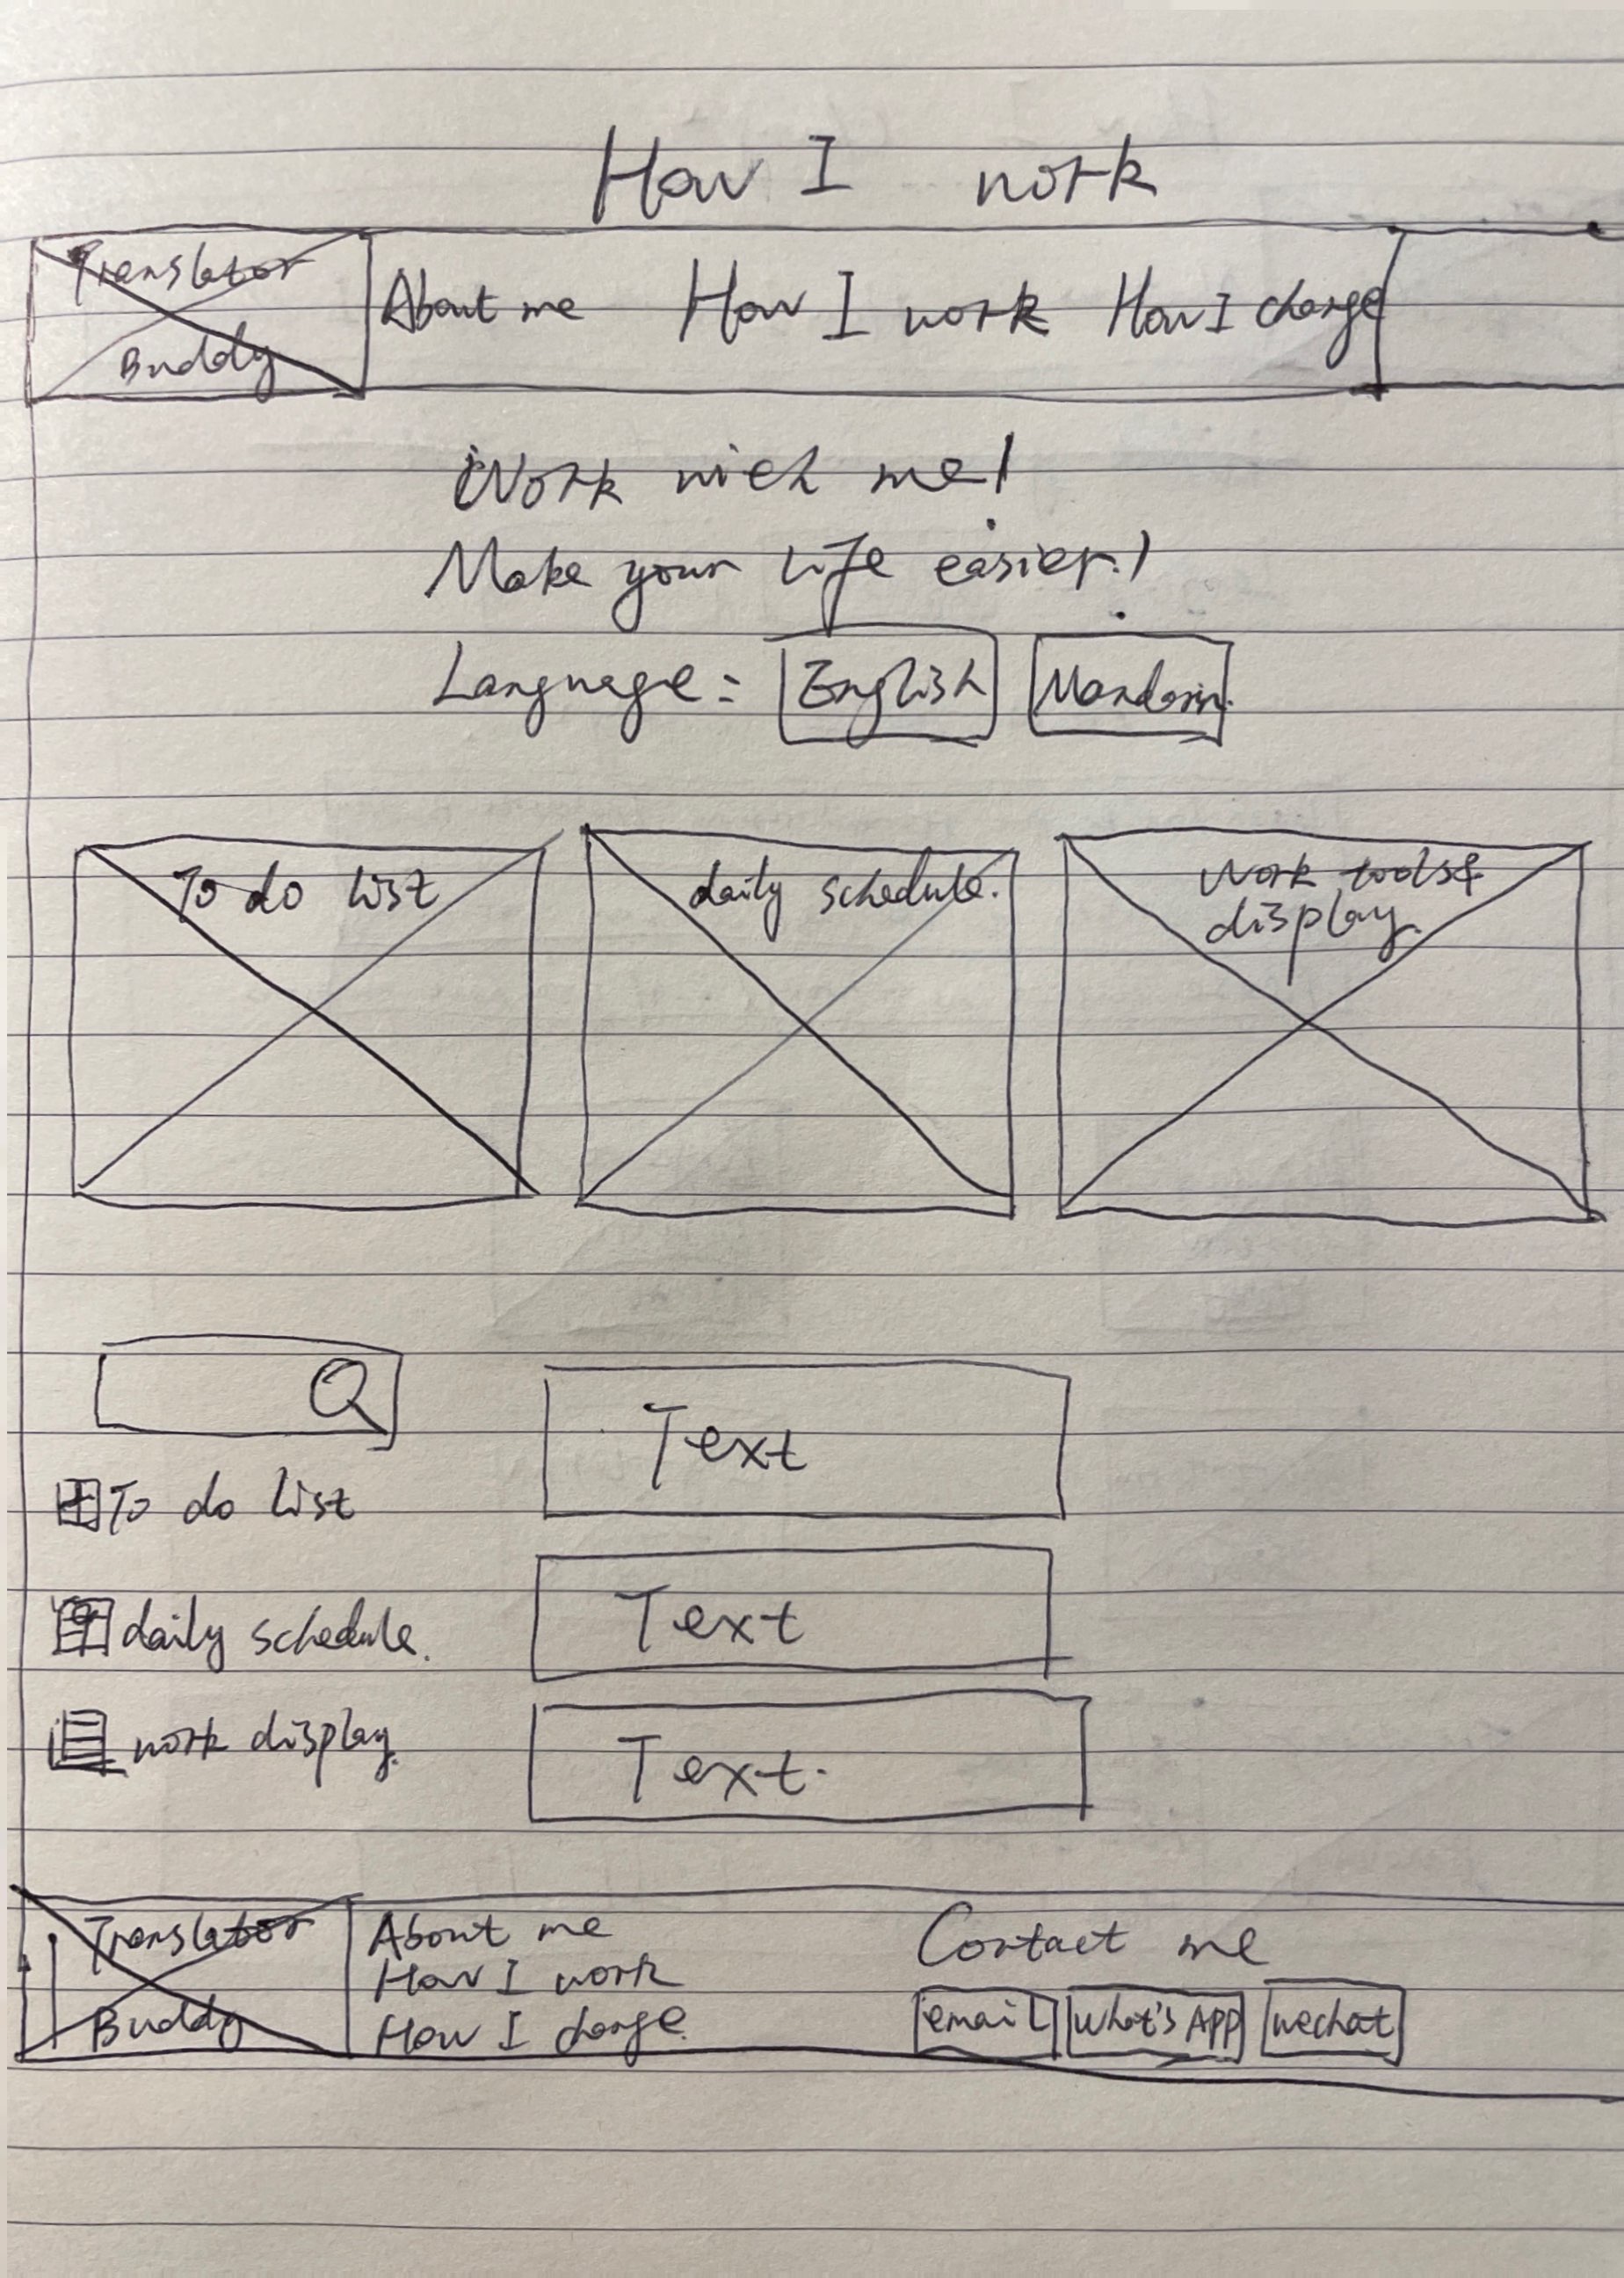 How I work
Translator
Buddy
About me How I work How I charge
Work with me!
Make your life easier!
Language: English Mandarin
To do list
daily schedule.
Work tools &
display.
To do list
Text
daily schedule.
Text
work display.
Text.
Translator
Buddy
About me
How I work
How I charge.
Contact me
email What's App wechat